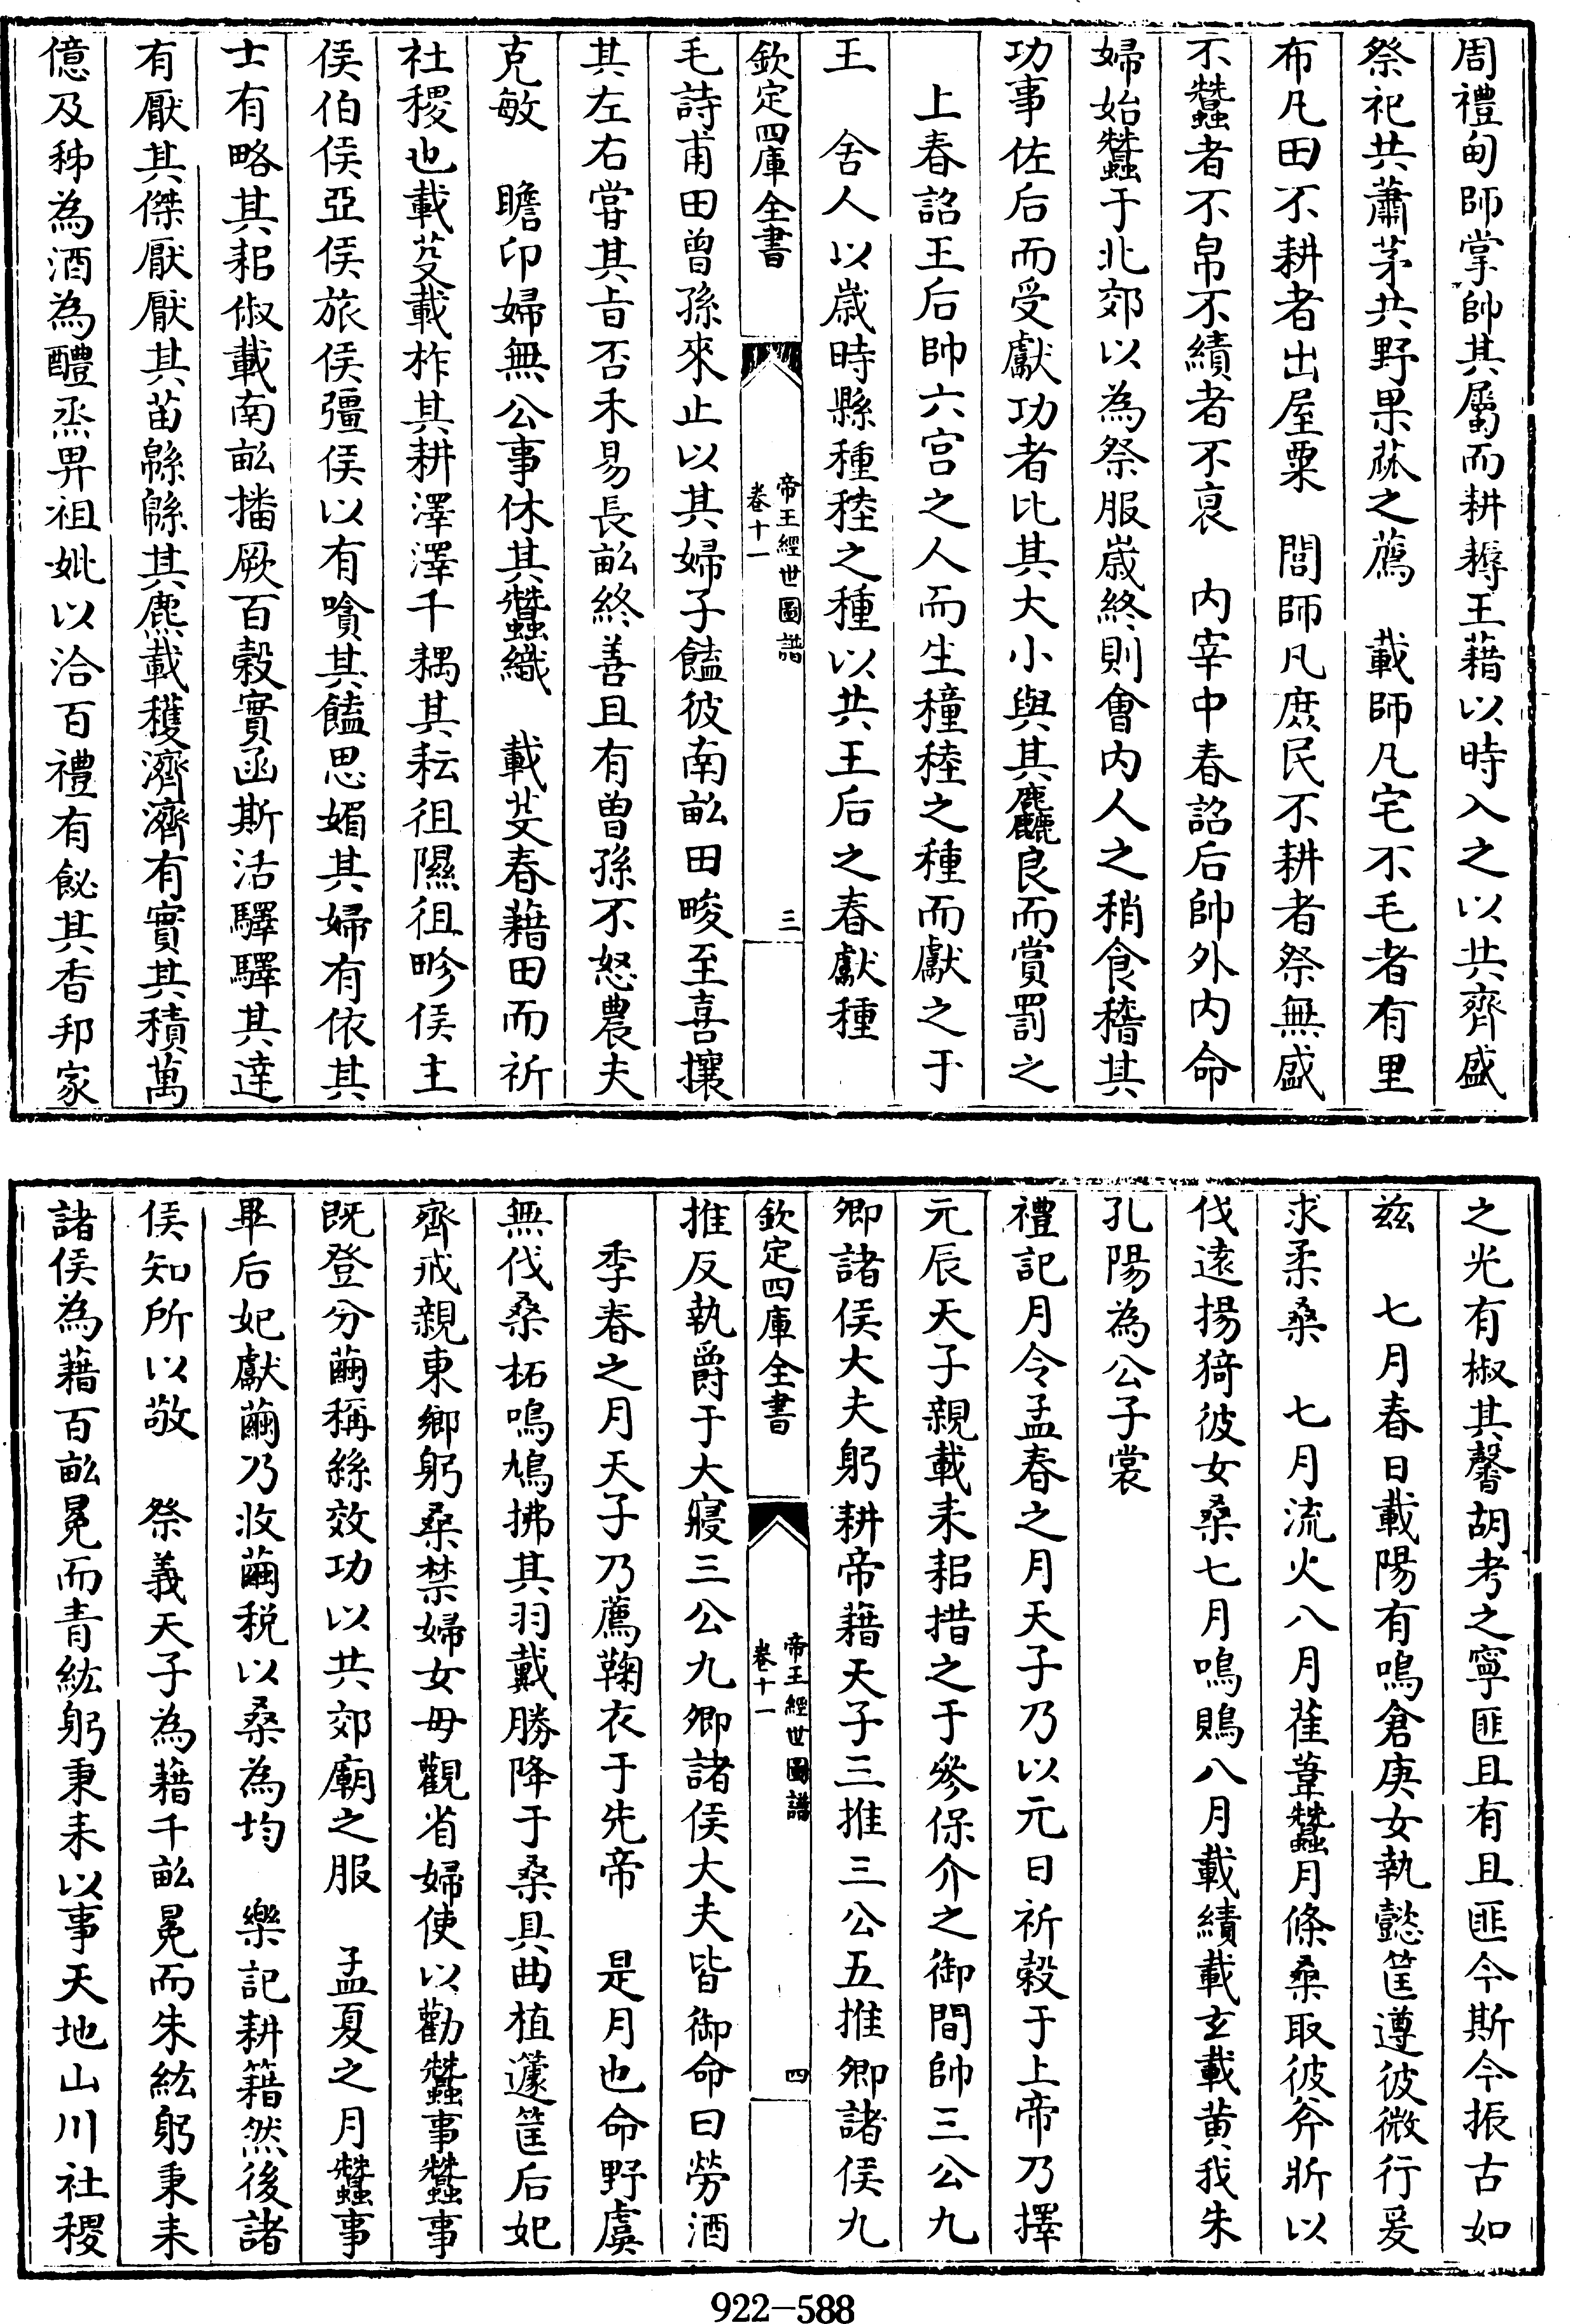 周禮甸師掌帥其屬而耕耨王藉以時入之以共齊盛
祭祀共蕭茅共野果蓏之薦　載師凡宅不毛者有里
布凡田不耕者出屋粟　閭師凡庶民不耕者祭無盛
不蠶者不帛不績者不衰　内宰中春詔后帥外内命
婦始蠶于北郊以為祭服歲終則會内人之稍食稽其
功事佐后而受獻功者比其大小與其麤良而賞罰之
上春詔王后帥六宫之人而生穜稑之種而獻之于
王　舍人以歲時縣種稑之種以共王后之春獻種
欽定四庫全書
帝王經世圖譜
卷十一
三
毛詩甫田曾孫來止以其婦子饁彼南畝田畯至喜攘
其左右嘗其㫖否禾易長畝終善且有曾孫不怒農夫
克敏　瞻卬婦無公事休其蠶織　載芟春藉田而祈
社稷也載芟載柞其耕澤澤千耦其耘徂隰徂畛侯主
侯伯侯亞侯旅侯彊侯以有嗿其饁思媚其婦有依其
士有略其耜俶載南畝播厥百榖實函斯活驛驛其達
有厭其傑厭厭其苗緜緜其麃載穫濟濟有實其積萬
億及秭為酒為醴烝畀祖妣以洽百禮有飶其香邦家
之光有椒其馨胡考之寧匪且有且匪今斯今振古如
兹　七月春日載陽有鳴倉庚女執懿筐遵彼微行爰
求柔桑　七月流火八月萑葦蠶月條桑取彼斧斨以
伐逺揚猗彼女桑七月鳴鵙八月載績載玄載黄我朱
孔陽為公子裳
禮記月令孟春之月天子乃以元日祈榖于上帝乃擇
元辰天子親載耒耜措之于參保介之御間帥三公九
卿諸侯大夫躬耕帝藉天子三推三公五推卿諸侯九
欽定四庫全書
帝王經世圖譜
卷十一
四
推反執爵于大寢三公九卿諸侯大夫皆御命曰勞酒
季春之月天子乃薦鞠衣于先帝　是月也命野虞
無伐桑柘鳴鳩拂其羽戴勝降于桑具曲植籧筐后妃
齊戒親東鄉躬桑禁婦女毋觀省婦使以勸蠶事蠶事
既登分繭稱絲效功以共郊廟之服　孟夏之月蠶事
畢后妃獻繭乃收繭税以桑為均　樂記耕籍然後諸
侯知所以敬　祭義天子為藉千畝冕而朱紘躬秉耒
諸侯為藉百畝冕而青紘躬秉耒以事天地山川社稷
922-588